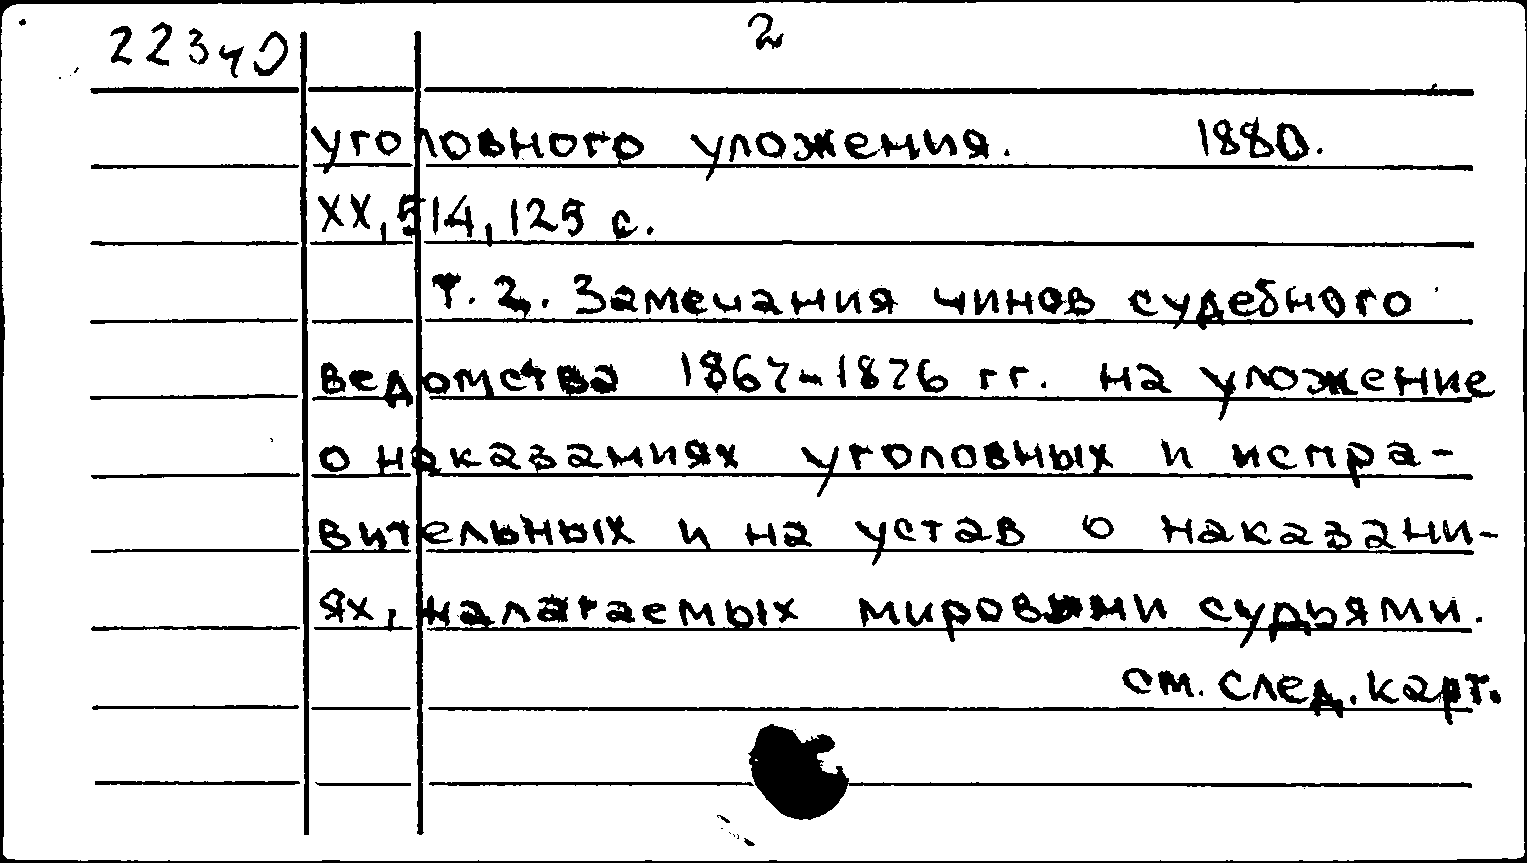 22340
2
уголовного уложения. 1880.
XX, 514, 125 с.
Т. 2. Замечания чинов судебного
ведомства 1867-1876 гг. на уложение
о наказаниях уголовных и испра-
вительных и на устав о наказани-
ях, налагаемых мировыми судьями.
см. след. карт.